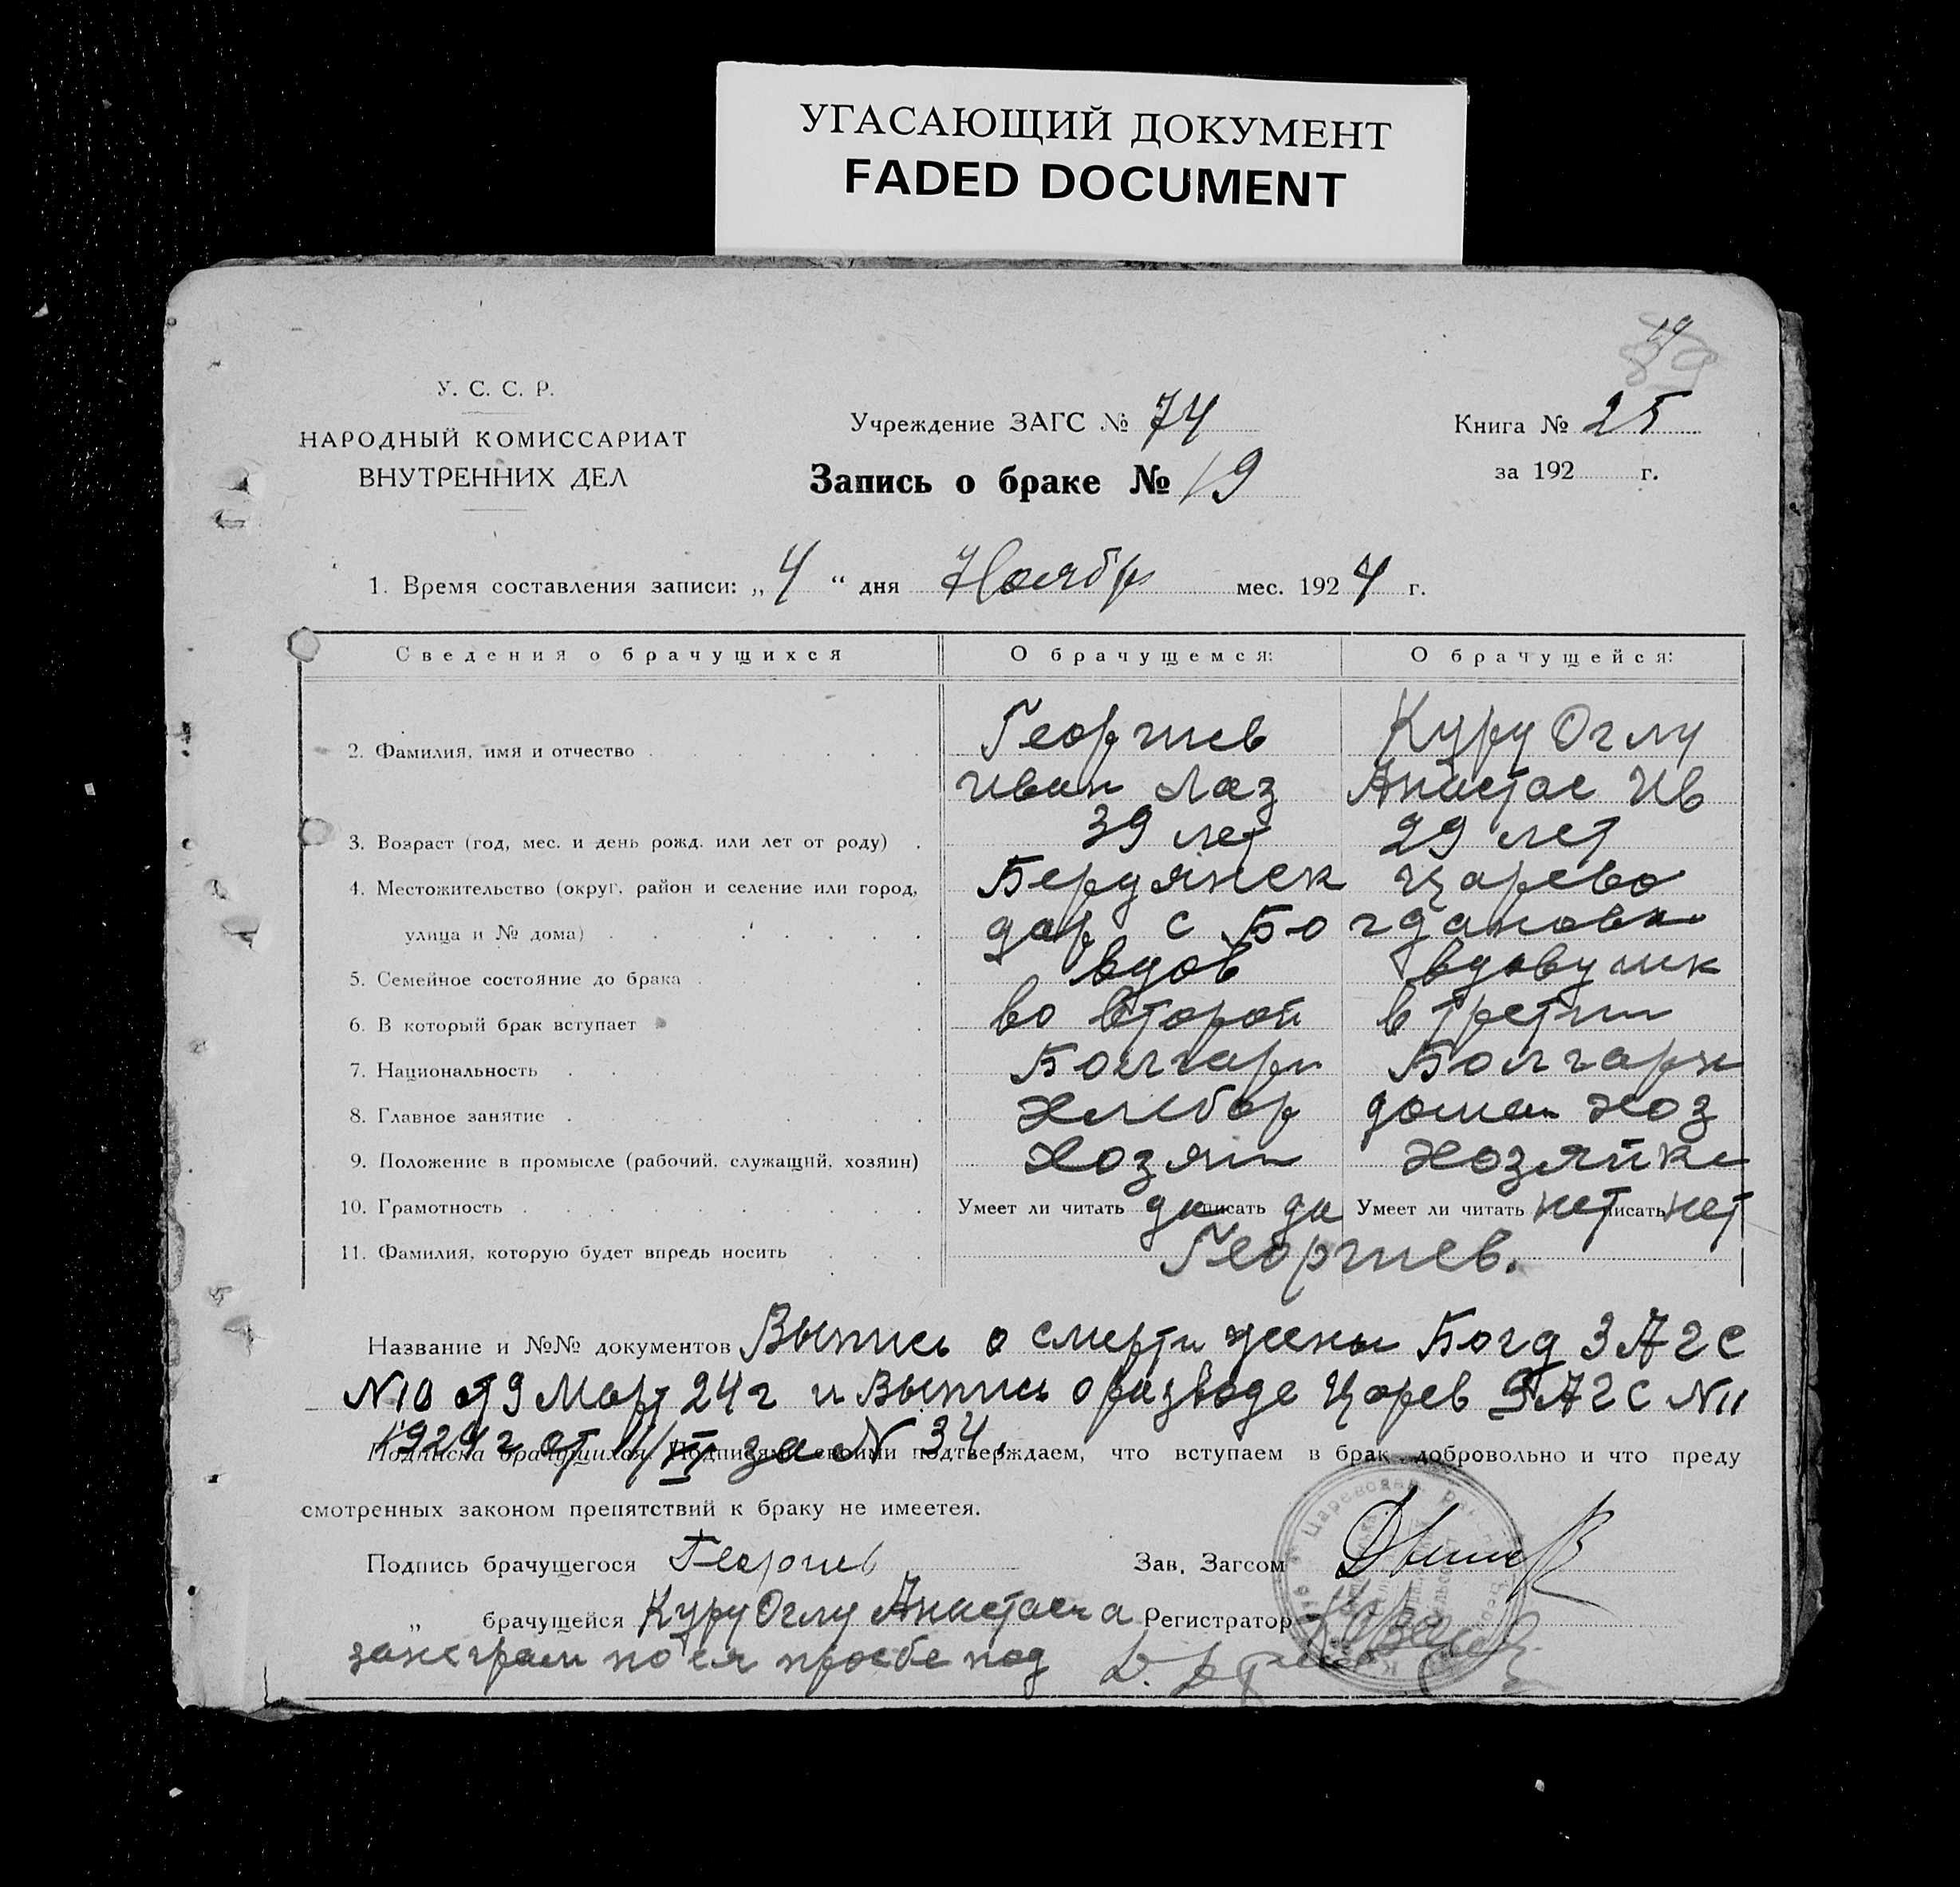 УГАСАЮЩИЙ ДОКУМЕНТ
FADED DOCUMENT
19
89
У. С. С. Р.
НАРОДНЫЙ КОМИССАРИАТ
ВНУТРЕННИХ ДЕЛ
Учреждение ЗАГС № 74
Запись о браке № 19
Книга № 25
за 192 г.
1. Время составления записи: „4“ дня Ноябр мес. 1924 г.
Сведения о брачущихся О брачущемся: О брачущейся:
2. Фамилия, имя и отчество Георгиев Куру Оглу
Иван Лаз Анастас Ив
3. Возраст (год, мес. и день рожд. или лет от роду) 39 лет 29 лет
4. Местожительство (округ, район и селение или город, Бердянск Царево
улица и № дома) дар с Богдановка
5. Семейное состояние до брака вдов
6. В который брак вступает во второй в третий
7. Национальность Болгари Болгарк
8. Главное занятие Хлебор домаш хоз
9. Положение в промысле (рабочий, служащий, хозяин) Хозяин хозяйка
10. Грамотность Умеет ли читать да писать да Умеет ли читать нет писать нет
11. Фамилия, которую будет впредь носить Георгиев.
Название и №№ документов Выпись о смерти жены Богд ЗАГС
N 10 от 9 Март 24 г и Выпись о разводе Царев ЗАГС N 11
1924 г от 11/ за N 34.
Подписка брачущихся. Подписями своими подтверждаем, что вступаем в брак добровольно и что преду
смотренных законом препятствий к браку не имеется.
Подпись брачущегося Георгиев Зав. Загсом
„ брачущейся Куру Оглу Анастасия Регистратор
по ея просьбе под